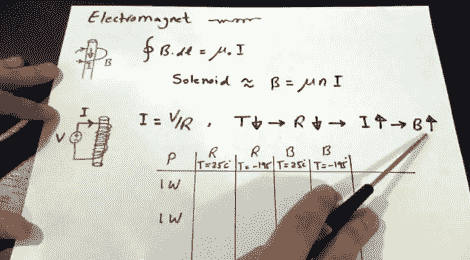 Electromagnet
B
∮ B.dl = μ. I
Solenoid ≈ B = μ n I
I
V
I = V/R , T↓ → R ↓ → I ↑ → B ↑
P R R B B
T=25c T=-195 T=25c T=-195
1W
1W